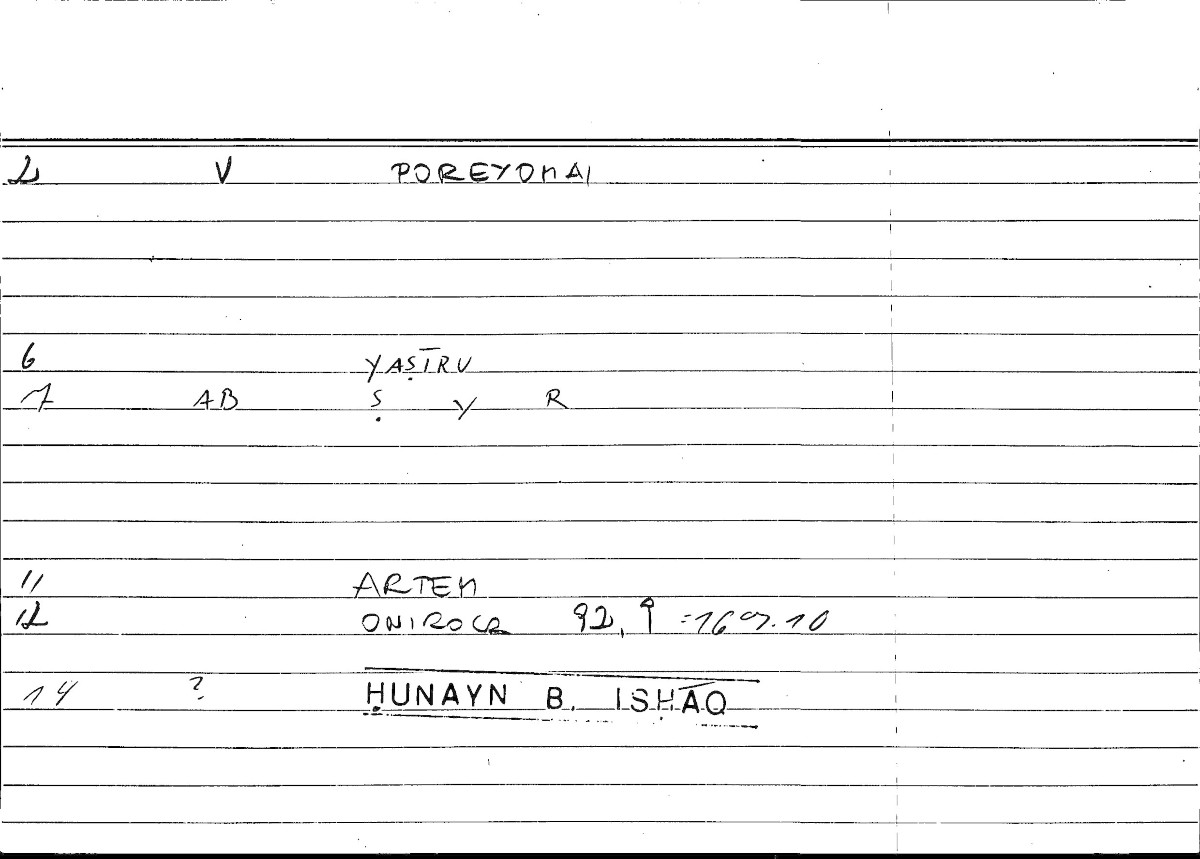 2 V POREYOMAI
6 YAṢĪRU
7 AB Ṣ Y R
11 ARTEM
12 ONIROCR 92, 9 =169.10
14 ? ḤUNAYN B. ISḤĀQ